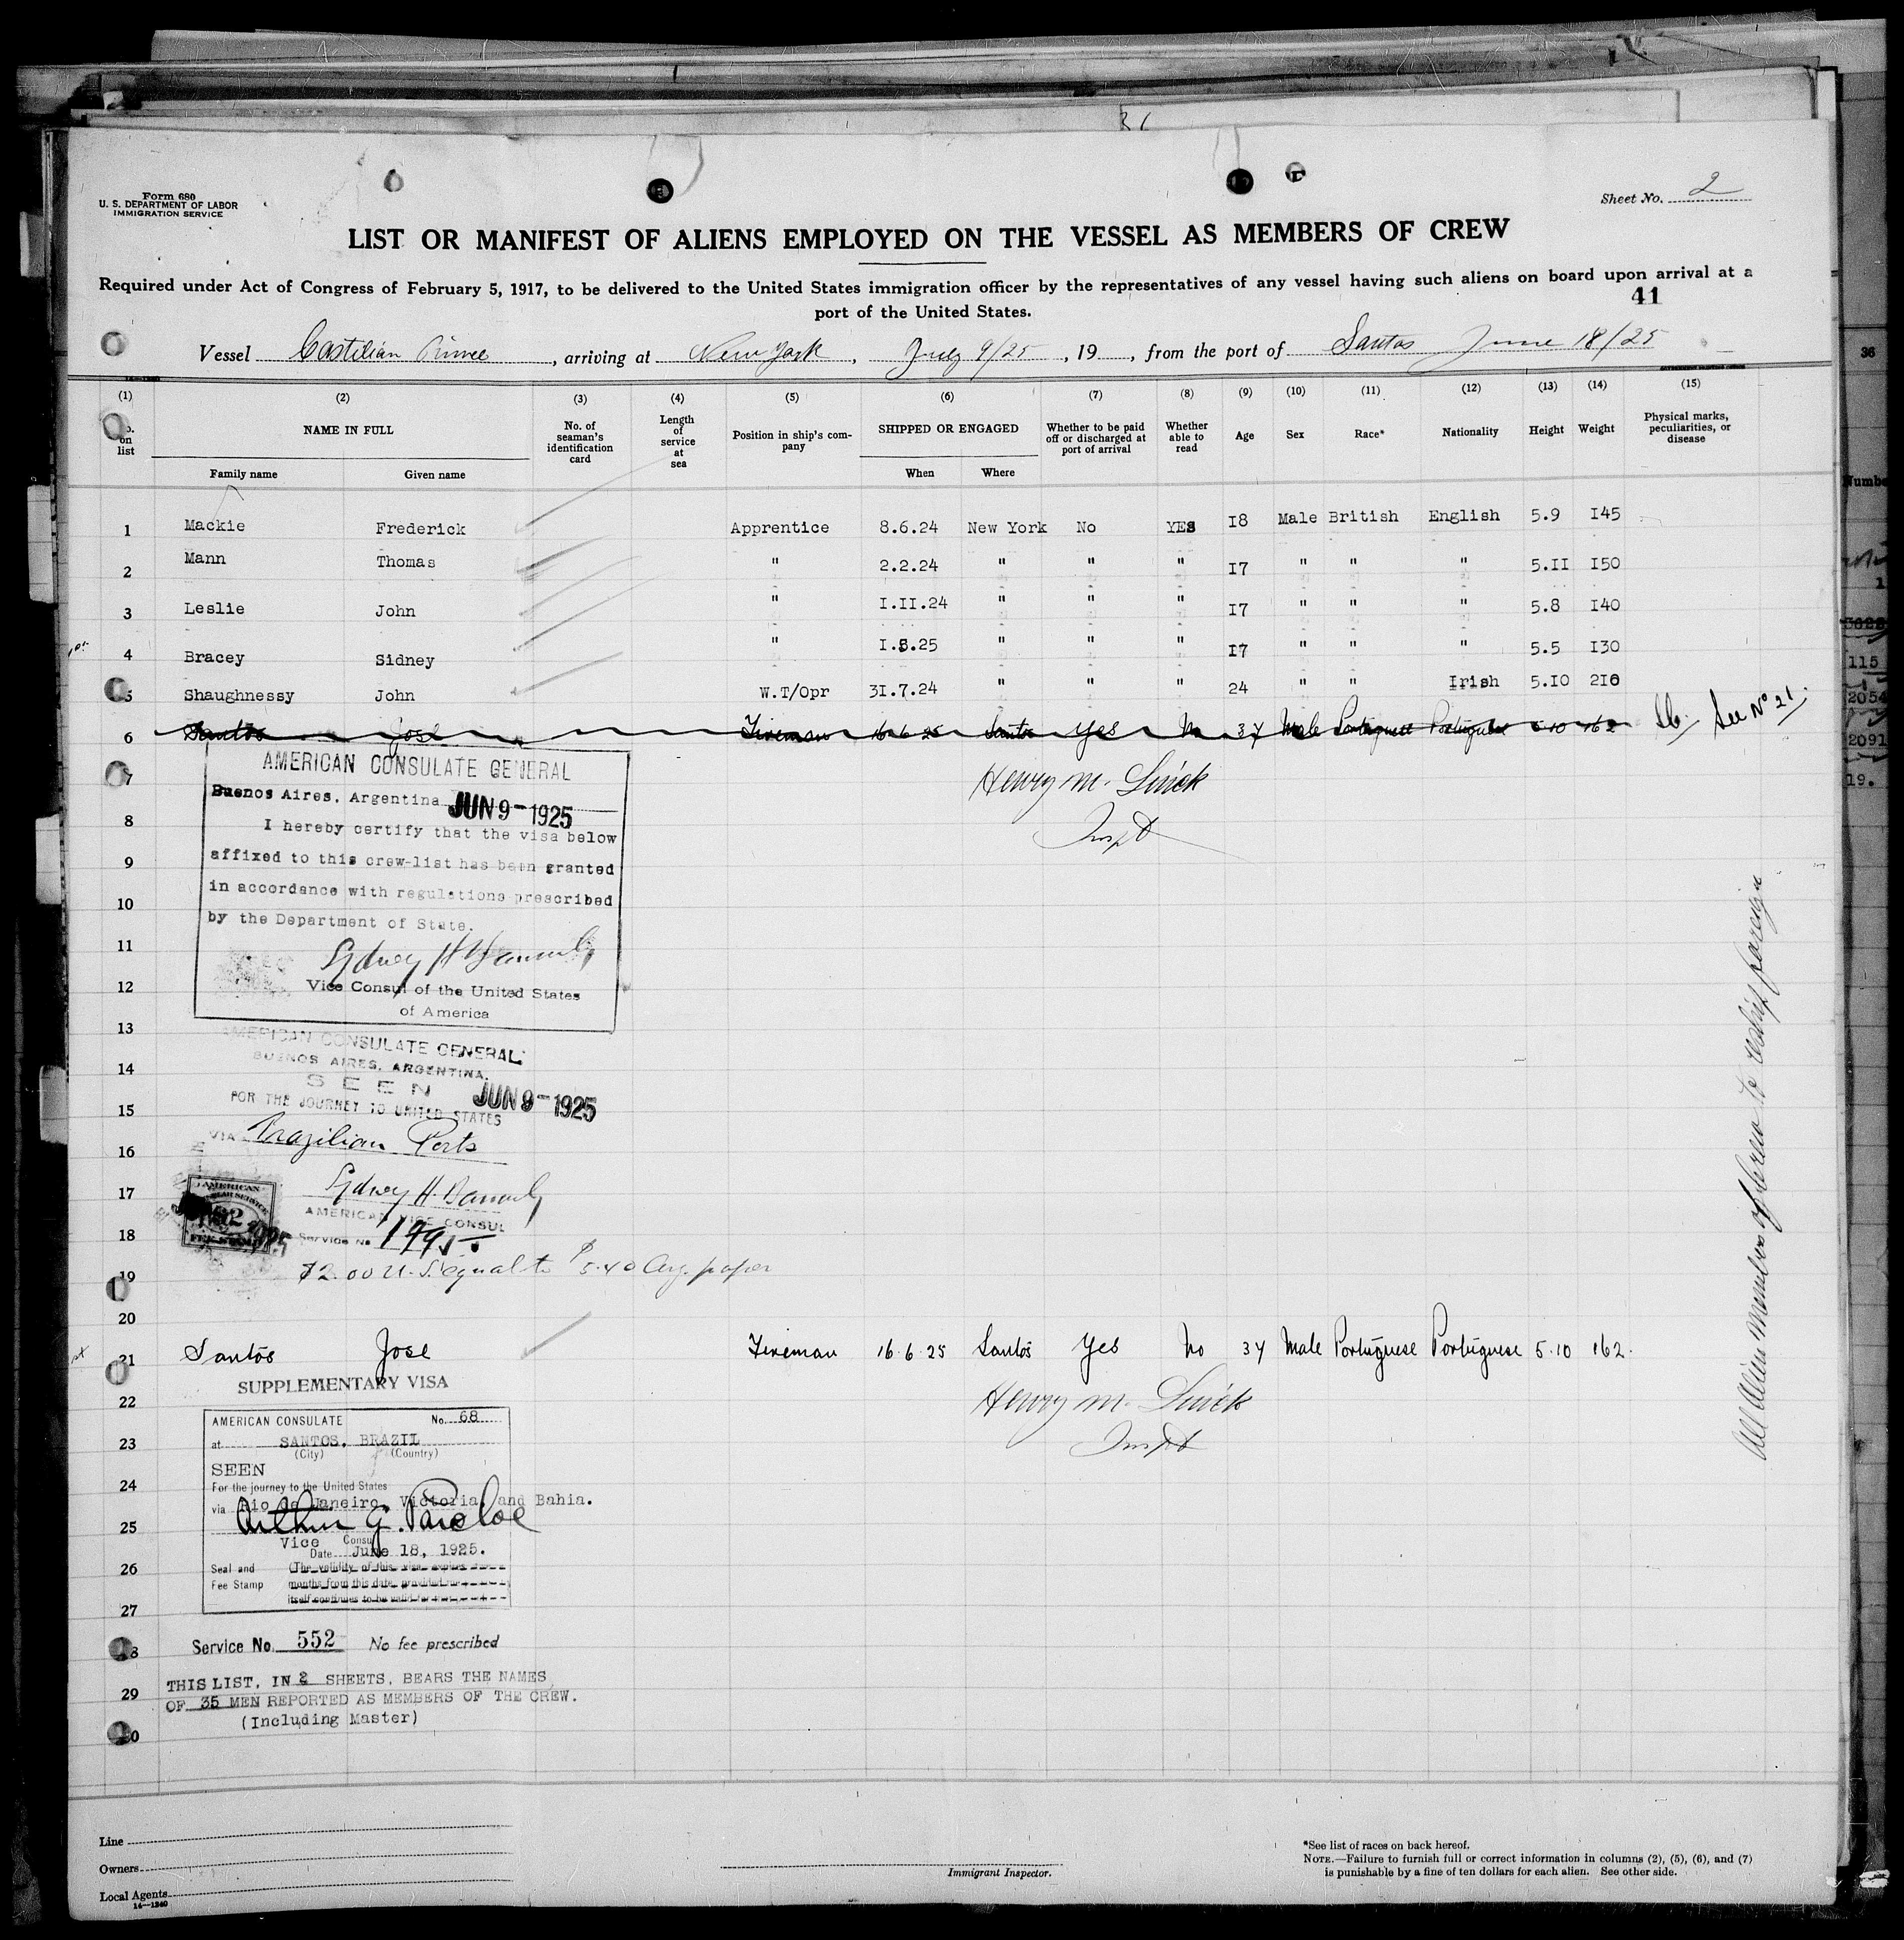 Form 680
U. S. DEPARTMENT OF LABOR
IMMIGRATION SERVICE
Sheet No. 2
LIST OR MANIFEST OF ALIENS EMPLOYED ON THE VESSEL AS MEMBERS OF CREW
Required under Act of Congress of February 5, 1917, to be delivered to the United States immigration officer by the representatives of any vessel having such aliens on board upon arrival at a
port of the United States.
41
Vessel Castilian Prince, arriving at New York, July 9/25, 19, from the port of Santos June 18/25
(1) (2) (3) (4) (5) (6) (7) (8) (9) (10) (11) (12) (13) (14) (15)
No. on list NAME IN FULL No. of seaman's identification card Length of service at sea Position in ship's company SHIPPED OR ENGAGED Whether to be paid off or discharged at port of arrival Whether able to read Age Sex Race* Nationality Height Weight Physical marks, peculiarities, or disease
Family name Given name When Where
1 Mackie Frederick Apprentice 8.6.24 New York No YES I8 Male British English 5.9 I45
2 Mann Thomas " 2.2.24 " " " I7 " " " 5.II I50
3 Leslie John " I.II.24 " " " I7 " " " 5.8 I40
4 Bracey Sidney " I.5.25 " " " I7 " " " 5.5 I30
5 Shaughnessy John W.T/Opr 3I.7.24 " " " 24 " " Irish 5.IO 2I0
6 Santos José Fireman 16 6 25 Santos Yes No 34 Male Portuguese Portuguese 5 10 162 See No 21.
7
Henry M.
Inspt
AMERICAN CONSULATE GENERAL
Buenos Aires, Argentina JUN 9-1925
8
I hereby certify that the visa below
9
affixed to this crew-list has been granted
10
in accordance with regulations prescribed
by the Department of State.
11
Sydney H
12
Vice Consul of the United States
of America
13
AMERICAN CONSULATE GENERAL
BUENOS AIRES, ARGENTINA.
14
SEEN JUN 9-1925
FOR THE JOURNEY TO UNITED STATES
15
VIA Brazilian Ports
16
17
Sydney H.
AMERICAN VICE CONSUL
18
Service No
AMERICAN
19
$2.00 U.S. equal to $5.40 Arg. paper
20
21 Santos José Fireman 16.6.25 Santos Yes No 34 Male Portuguese Portuguese 5.10 162.
SUPPLEMENTARY VISA
22
Henry M.
Inspt
AMERICAN CONSULATE No. 68
23
at SANTOS, BRAZIL
(City) (Country)
SEEN
24
For the journey to the United States
via Rio de Janeiro, Victoria, and Bahia.
25
Arthur G. Parsloe
Vice Consul
Date June 18, 1925.
26
Seal and Fee Stamp
(The validity of this visa expires
months from this date, provided
itself continues to be valid for
27
28
Service No. 552 No fee prescribed
THIS LIST, IN 2 SHEETS, BEARS THE NAMES
29
OF 35 MEN REPORTED AS MEMBERS OF THE CREW.
(Including Master)
30
All Alien Members of Crew to reship foreign
Line
Owners
Local Agents
14—1240
Immigrant Inspector.
*See list of races on back hereof.
NOTE.—Failure to furnish full or correct information in columns (2), (5), (6), and (7)
is punishable by a fine of ten dollars for each alien. See other side.
36
Number
115
2054
2091
19.